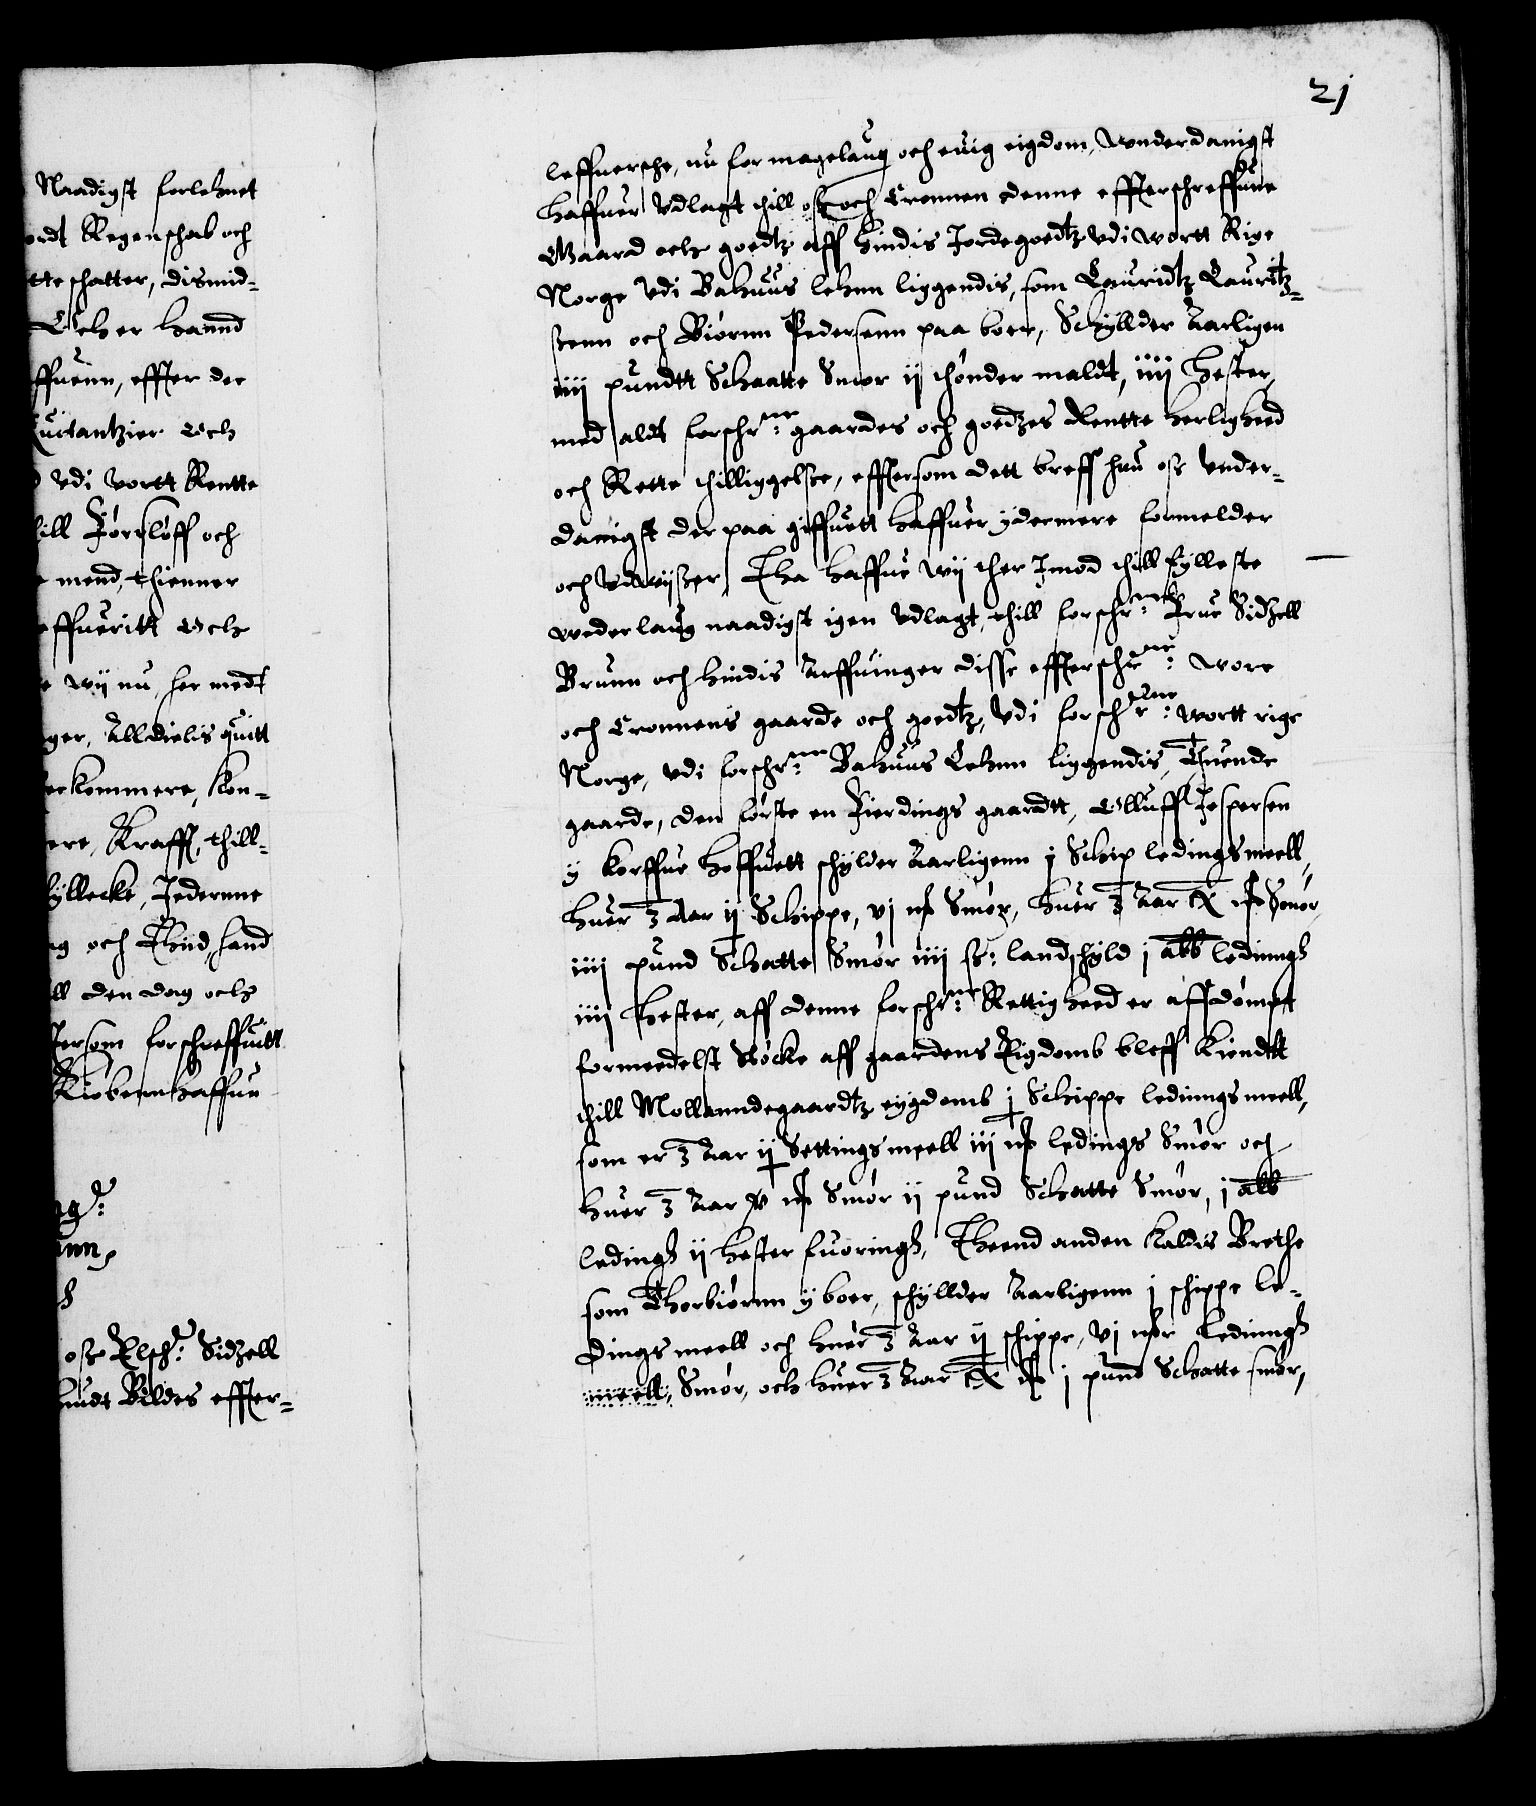 Naadigst forlehnet
ordt Regenschab och
tte schatter, dismid-
Och er hannd
ffuenn, effter der
Quitantzier Och
vdi vortt Rentte
till Førsløff och
mend, thienner
effueritt Och
wij nu her medt
ger, Alldielis quitt
ekommere, Kon-
ere, Krafft, thill-
yllecke, Jedernne
ng och Thiid, hand
ll den dag och
tersom forschreffuitt
Kiøbennhaffnn
ag:
unn,
osz Elsch: Sidzell
undt Bildes effter-
21
leffuersche, nu for magelaug och euig eigdom, wnderdanigst
haffuer Vdlagt thill osz och Cronnen denne effterschreffune
Gaard och goedtz aff hindis Jordegoedtz vdi wortt Rige
Norge vdi Bahuus lehnn liggendis, som Lauridtz Lauritz-
senn och Biørnn Pedersenn paa boer, Schyllder Aarligen
iiij pundtt Schaatte Smør ij thønder maldt, iiij hester,
med aldt forschr:ne gaardes och goedzes Rentte herlighed
och Rette thilliggelsse, efftersom dett breff hun osz vnder-
danigst der paa giffuett haffuer ydermere formelder
och Vdwiszer, Tha haffue wij ther Imod thill fylleste
wederlaug naadigst igen vdlagt, thill forschr:ne Frue Sidzell
Bruun och hindis Arffuinger disse effterschr:ne wore
och Cronnens gaarde och goedtz, vdi forschr:ne wortt rige
Norge, vdi forschr:ne Bahuus Lehnn liggendis, Thuende
gaarde, den første en Fierdings gaardtt, Olluff Jespersen
y Korffue hoffuett schylder Aarligenn j Schip ledings meell,
huer 3 Aar ij Schippe, vj Smør, huer 3 Aar Smør,
iiij pund Schatte Smør iiij sz: landschyld j alb ledinngs
iiij hester, aff denne forschr:ne Rettigheed er affdømpt
formedelst Støcke aff gaardens Eigdomb bleff Kiendtt
thill Mollanndegaardtz eygdomb j Schippe ledinngs meell,
som er 3 Aar ij Settings meell iij ledings Smør och
huer 3 Aar Smør ij pund Schatte Smør, j alb
ledings ij hester fuorings, Theend anden Kaldis Brethe
som Thorbiørnn y boer, schyllder Aarligenn j schippe le-
dings meell och huer 3 Aar ij schippe, vj ledinngs
meell, Smør, och huer 3 Aar j pund Schatte smør,